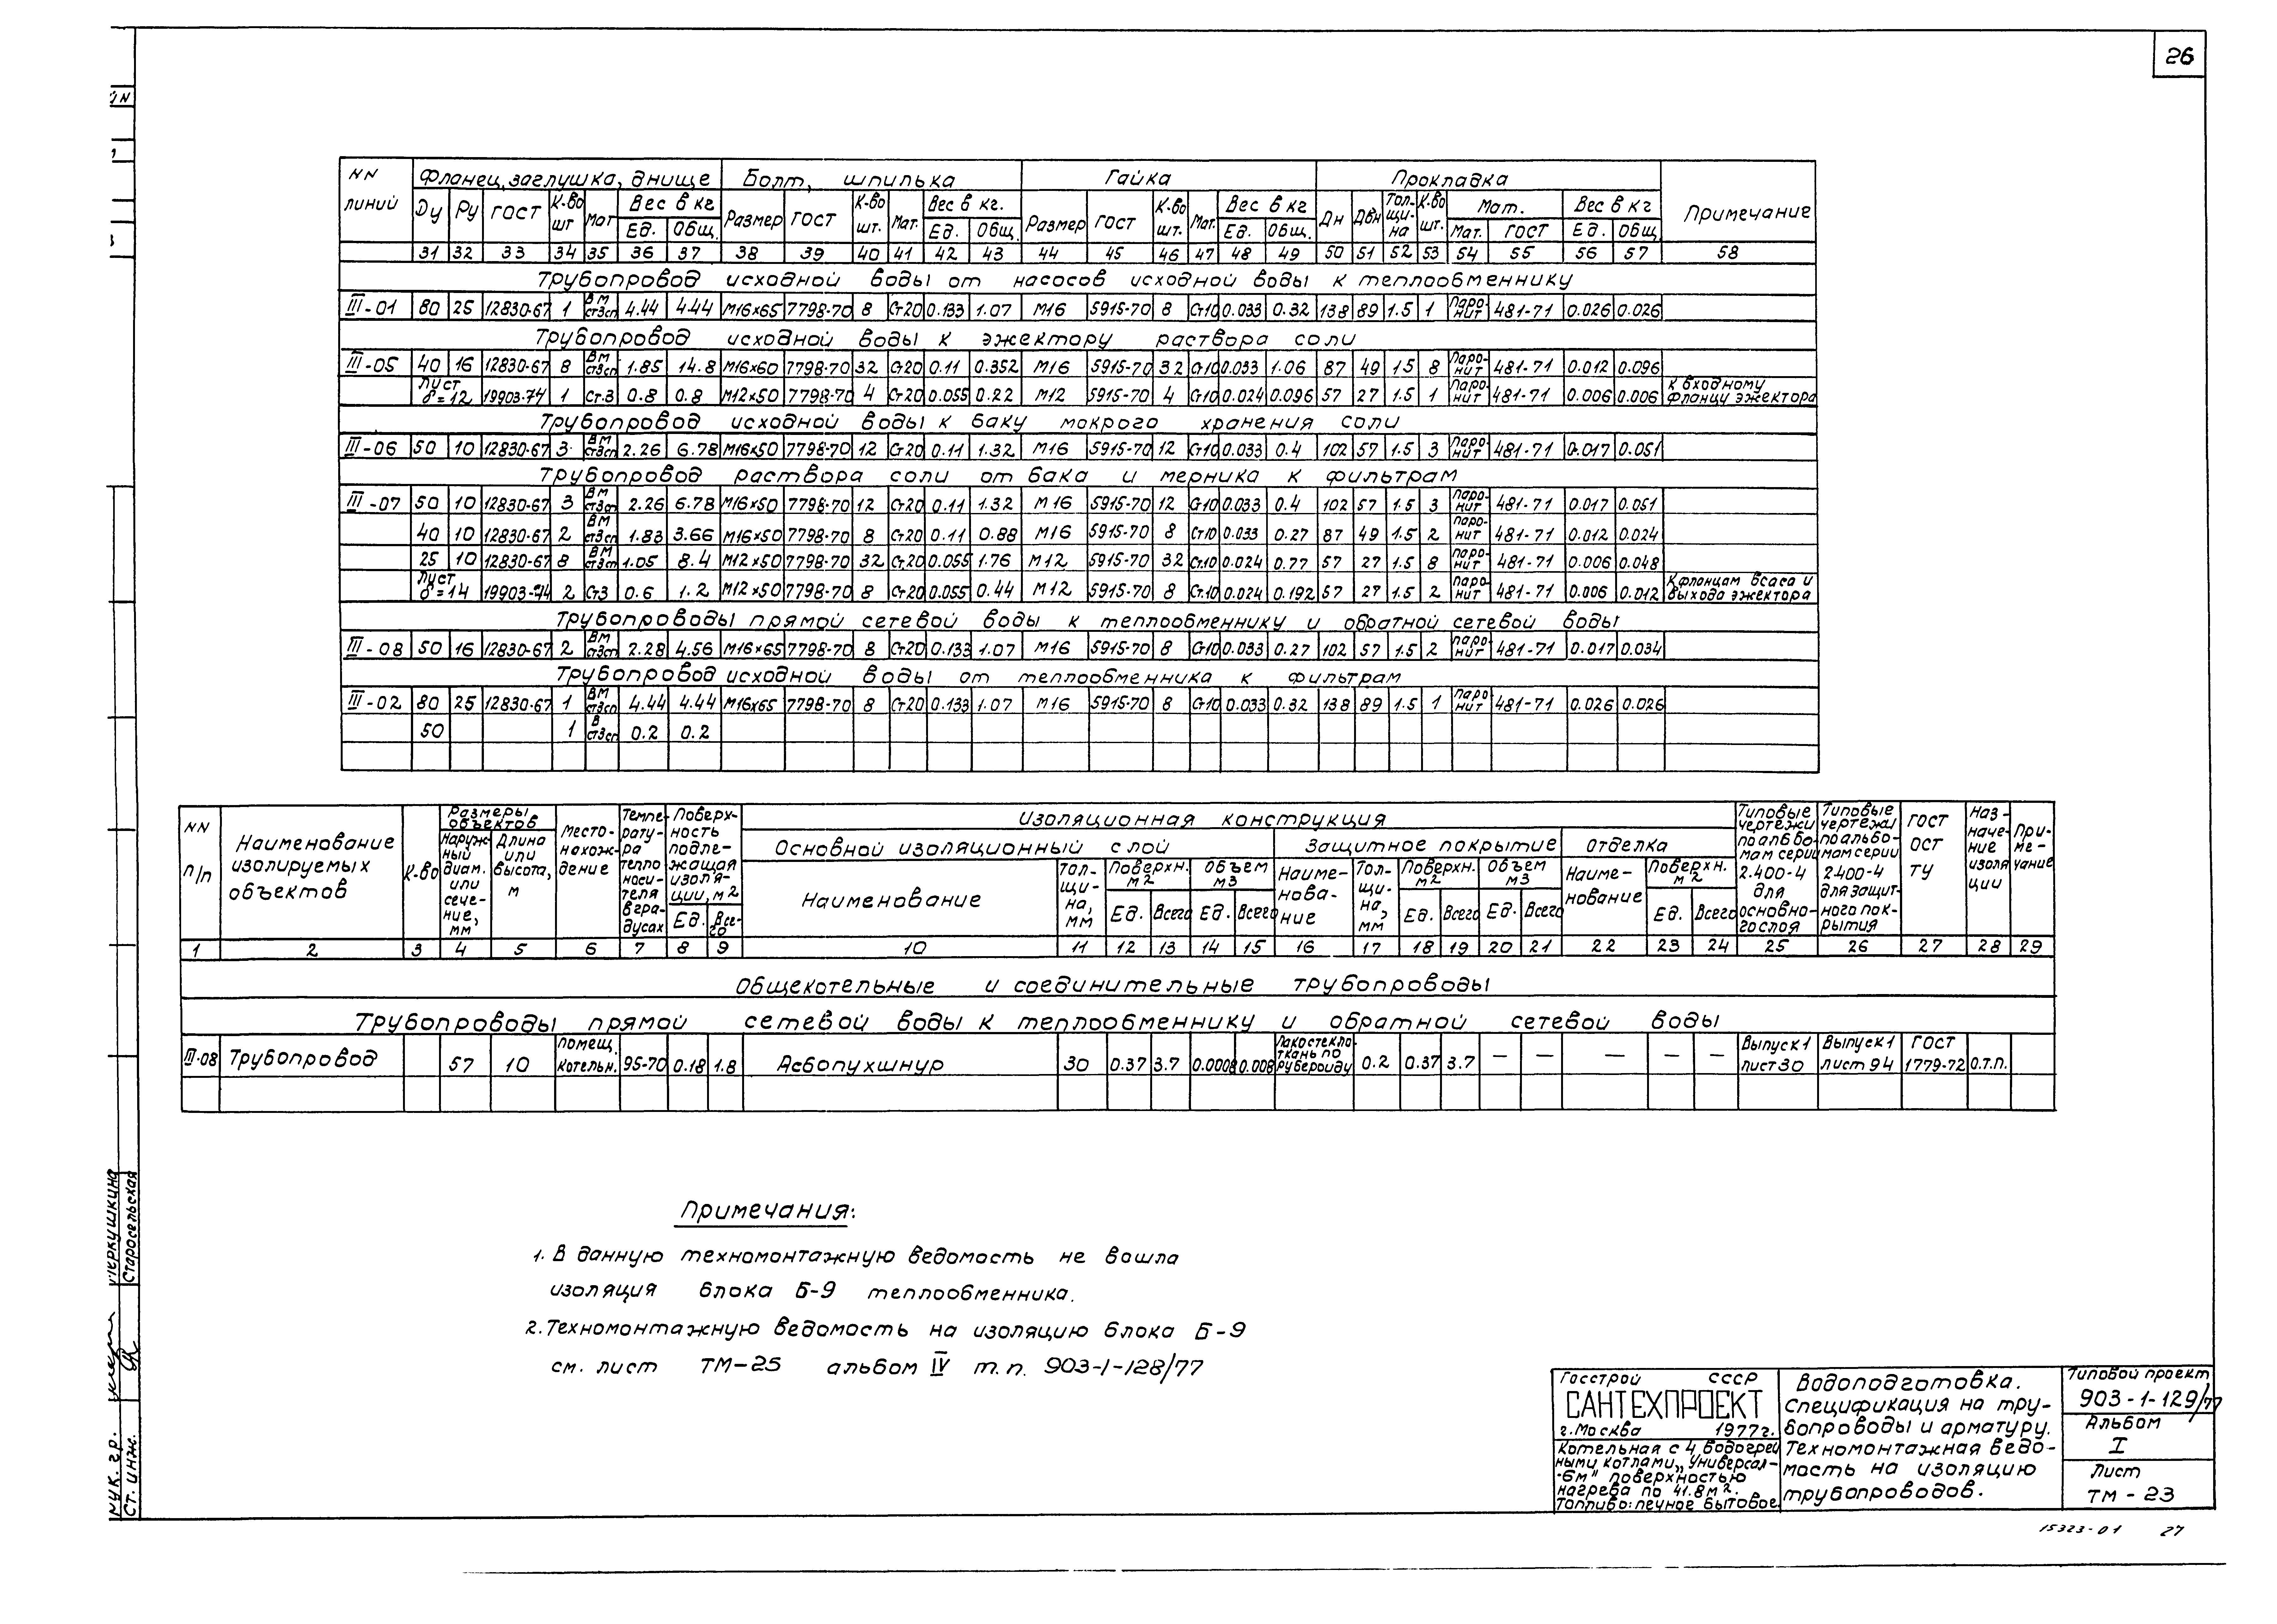 26
NN линий | Фланец, заглушка, днище | Болт, шпилька | Гайка | Прокладка | Примечание
Ду | Ру | ГОСТ | К-во шт | Мат | Вес в кг Ед. Общ. | Размер | ГОСТ | К-во шт. | Мат. | Вес в кг. Ед. Общ. | Размер | ГОСТ | К-во шт. | Мат. | Вес в кг Ед. Общ. | Дн | Двн | Толщи-на | К-во шт. | Мат. Мат. ГОСТ | Вес в кг Ед. Общ.
31 32 33 34 35 36 37 38 39 40 41 42 43 44 45 46 47 48 49 50 51 52 53 54 55 56 57 58
Трубопровод исходной воды от насосов исходной воды к теплообменнику
III-01 80 25 12830-67 1 ВМ ст3сп 4.44 4.44 М16×65 7798-70 8 Ст20 0.133 1.07 М16 5915-70 8 Ст10 0.033 0.32 138 89 1.5 1 Паро-нит 481-71 0.026 0.026
Трубопровод исходной воды к эжектору раствора соли
III-05 40 16 12830-67 8 ВМ ст3сп 1.85 14.8 М16×60 7798-70 32 Ст20 0.11 0.352 М16 5915-70 32 Ст10 0.033 1.06 87 49 1.5 8 Паро-нит 481-71 0.012 0.096
Лист δ=12 19903-74 1 Ст.3 0.8 0.8 М12×50 7798-70 4 Ст20 0.055 0.22 М12 5915-70 4 Ст10 0.024 0.096 57 27 1.5 1 Паро-нит 481-71 0.006 0.006 К входному фланцу эжектора
Трубопровод исходной воды к баку мокрого хранения соли
III-06 50 10 12830-67 3 ВМ ст3сп 2.26 6.78 М16×50 7798-70 12 Ст20 0.11 1.32 М16 5915-70 12 Ст10 0.033 0.4 102 57 1.5 3 Паро-нит 481-71 0.017 0.051
Трубопровод раствора соли от бака и мерника к фильтрам
III-07 50 10 12830-67 3 ВМ ст3сп 2.26 6.78 М16×50 7798-70 12 Ст20 0.11 1.32 М16 5915-70 12 Ст10 0.033 0.4 102 57 1.5 3 Паро-нит 481-71 0.017 0.051
40 10 12830-67 2 ВМ ст3сп 1.83 3.66 М16×50 7798-70 8 Ст20 0.11 0.88 М16 5915-70 8 Ст10 0.033 0.27 87 49 1.5 2 паро-нит 481-71 0.012 0.024
25 10 12830-67 8 ВМ ст3сп 1.05 8.4 М12×50 7798-70 32 Ст.20 0.055 1.76 М12 5915-70 32 Ст.10 0.024 0.77 57 27 1.5 8 паро-нит 481-71 0.006 0.048
Лист δ=14 19903-74 2 Ст3 0.6 1.2 М12×50 7798-70 8 Ст20 0.055 0.44 М12 5915-70 8 Ст.10 0.024 0.192 57 27 1.5 2 паро-нит 481-71 0.006 0.012 К фланцам всаса и выхода эжектора
Трубопроводы прямой сетевой воды к теплообменнику и обратной сетевой воды
III-08 50 16 12830-67 2 ВМ ст3сп 2.28 4.56 М16×65 7798-70 8 Ст20 0.133 1.07 М16 5915-70 8 Ст10 0.033 0.27 102 57 1.5 2 паро-нит 481-71 0.017 0.034
Трубопровод исходной воды от теплообменника к фильтрам
III-02 80 25 12830-67 1 ВМ ст3сп 4.44 4.44 М16×65 7798-70 8 Ст20 0.133 1.07 М16 5915-70 8 Ст10 0.033 0.32 138 89 1.5 1 паро нит 481-71 0.026 0.026
50 1 В ст3сп 0.2 0.2
NN п/п | Наименование изолируемых объектов | К-во | Размеры объектов | Место-нахож-дение | Темпе-рату-ра тепло носи-теля в гра-дусах | Поверх-ность подле-жащая изоля-ции, м2 | Изоляционная конструкция | Типовые чертежи по альбо-мам серии 2.400-4 для основно-го слоя | Типовые чертежи по альбо-мам серии 2.400-4 для защит-ного пок-рытия | ГОСТ ОСТ ТУ | Наз-наче-ние изоля ции | При-ме-чание
Наруж-ный диам. или сече-ние, мм | Длина или высота, м | Ед. | Все-го | Основной изоляционный слой | Защитное покрытие | Отделка
Наименование | Тол-щи-на, мм | Поверхн. м2 Ед. Всего | Объем м3 Ед. Всего | Наиме-нова-ние | Тол-щи-на, мм | Поверхн. м2 Ед. Всего | Объем м3 Ед. Всего | Наиме-нование | Поверхн. м2 Ед. Всего
1 2 3 4 5 6 7 8 9 10 11 12 13 14 15 16 17 18 19 20 21 22 23 24 25 26 27 28 29
Общекотельные и соединительные трубопроводы
Трубопроводы прямой сетевой воды к теплообменнику и обратной сетевой воды
III-08 Трубопровод 57 10 помещ. котельн. 95-70 0.18 1.8 Асбопухшнур 30 0.37 3.7 0.0008 0.008 Лакостекло-ткань по рубероиду 0.2 0.37 3.7 — — — — — Выпуск 1 лист 30 Выпуск 1 лист 94 ГОСТ 1779-72 О.Т.П.
Примечания:
1. В данную техномонтажную ведомость не вошла
изоляция блока Б-9 теплообменника.
2. Техномонтажную ведомость на изоляцию блока Б-9
см. лист ТМ-25 альбом IV т.п. 903-1-128/77
Госстрой СССР
САНТЕХПРОЕКТ
г. Москва 1977г.
Котельная с 4 водогрей
ными котлами „Универсал-
-6м" поверхностью
нагрева по 41.8 м2.
Топливо: печное бытовое
Водоподготовка.
Спецификация на тру-
бопроводы и арматуру.
Техномонтажная ведо-
мость на изоляцию
трубопроводов.
Типовой проект
903-1-129/77
Альбом
I
Лист
ТМ-23
15323-01 27
Меркушкина
Старосельская
рук. гр.
Ст. инж.